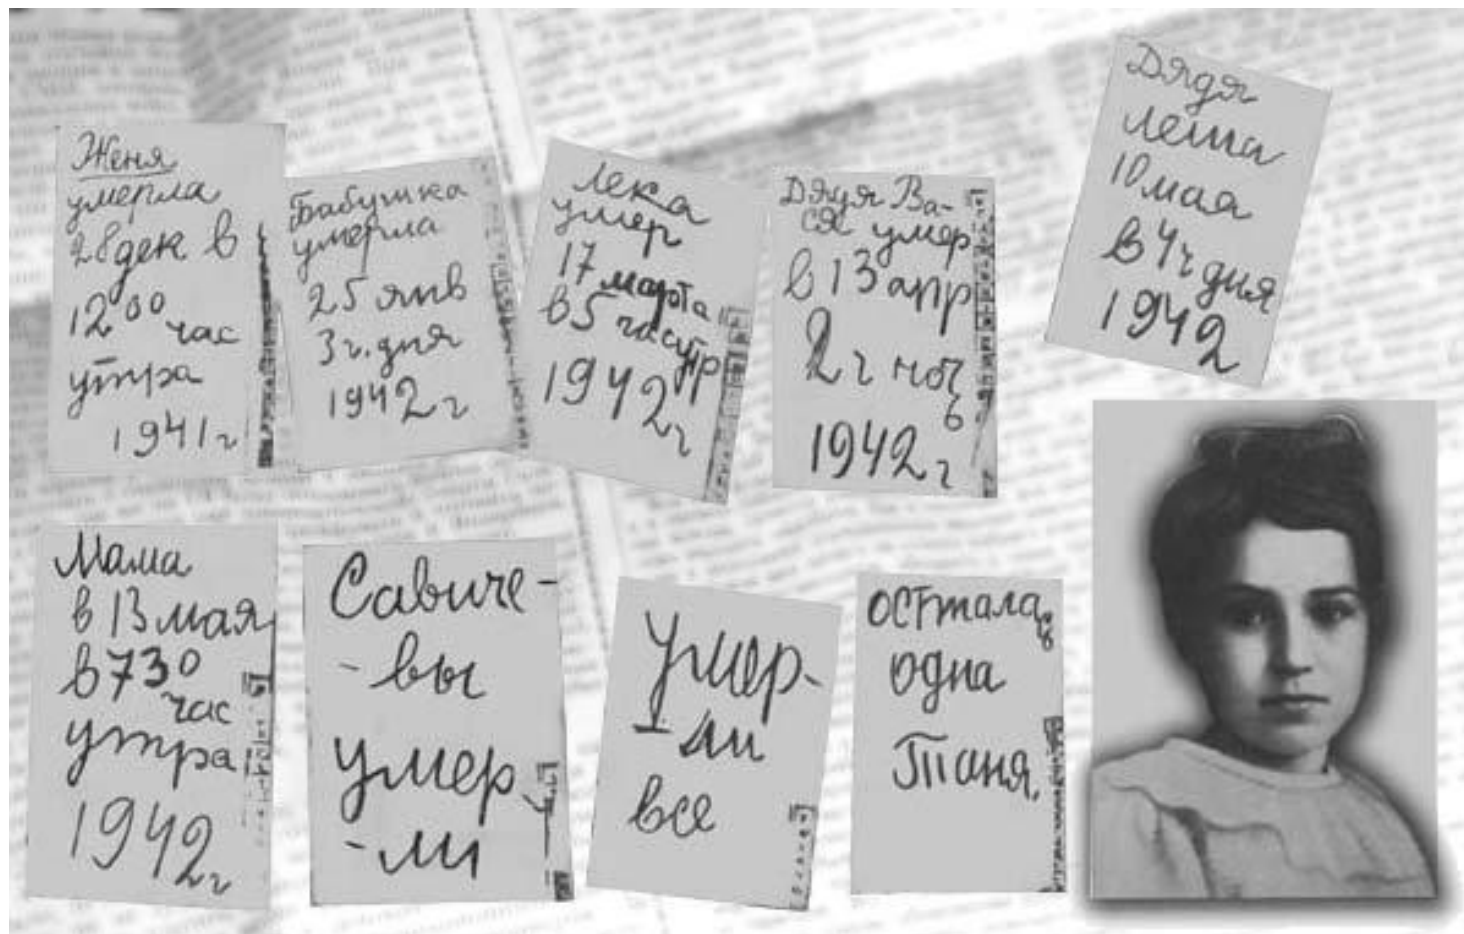 Женя
умерла
28 дек в
12 00 час
утра
1941 г
Бабушка
умерла
25 янв
3 ч. дня
1942 г
Лека
умер
17 марта
в 5 час утр
1942 г
Дядя Ва-
ся умер
в 13 апр
2 ч ночь
1942 г
Дядя
Леша
10 мая
в 4 ч дня
1942
Мама
в 13 мая
в 7 30
час
утра
1942 г
Савиче-
-вы
умер
-ли
Умер-
-ли
все
Осталась
одна
Таня.